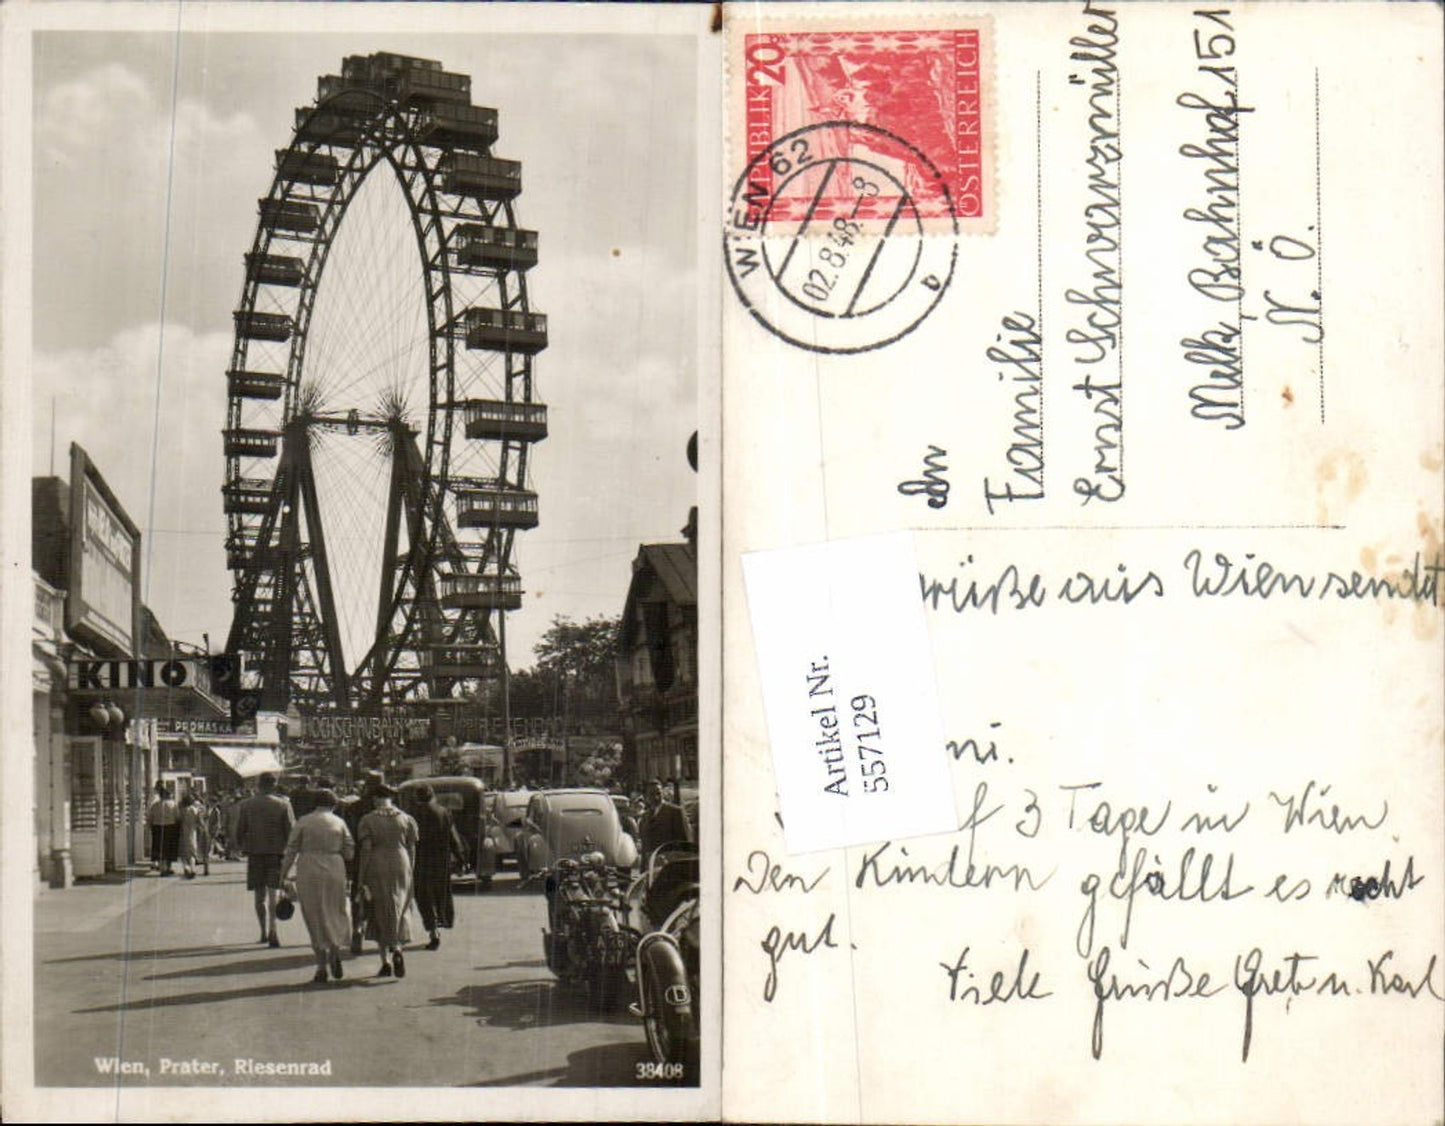 KINO
PROHASKA
HOCHSCHAUBAHN
RIESENRAD
D
Wien, Prater, Riesenrad
38408
REPUBLIK 20
ÖSTERREICH
WIEN 62
02.8.48.—8
D
An
Familie
Ernst Schwarzmüller
Melk, Bahnhof 151
N. Ö.
Artikel Nr.
557129
aus Wien sendet
3 Tage in Wien.
Den Kindern gefällt es recht
gut.
Viele Grüße Gretl u. Karl